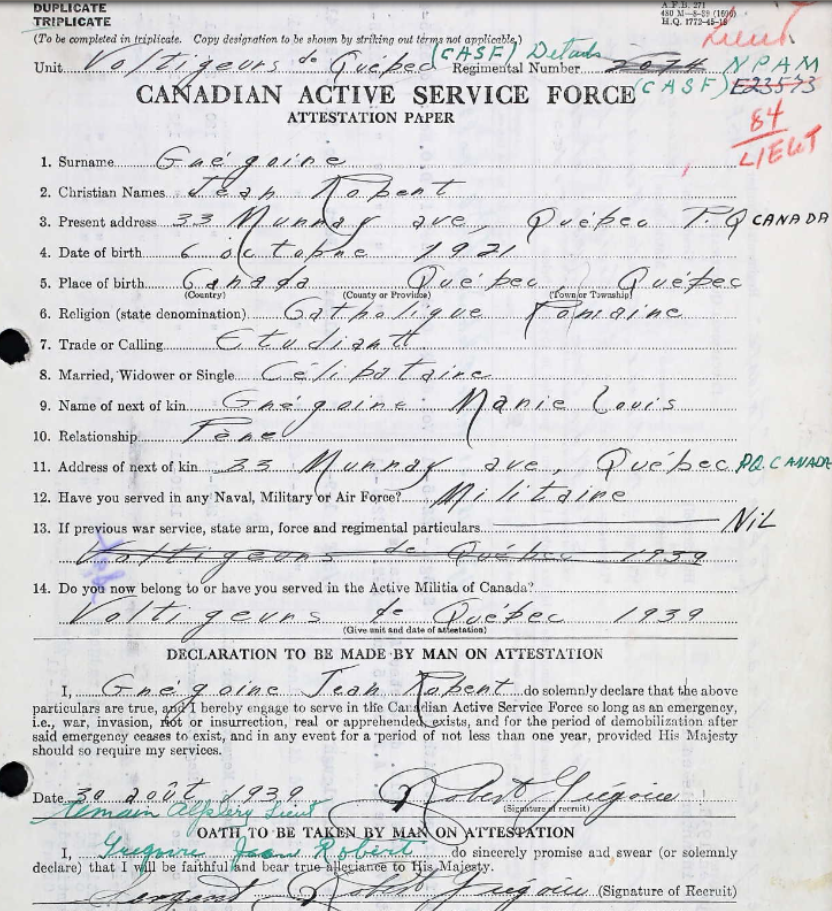 DUPLICATE
TRIPLICATE
A.F.B. 271
480 M—8-39 (1590)
H.Q. 1772-45-15
(To be completed in triplicate. Copy designation to be shown by striking out terms not applicable.)
Lieut
Unit Voltigeurs de Québec (CASF) Details Regimental Number 2074 NPAM
(CASF) E23573
CANADIAN ACTIVE SERVICE FORCE
ATTESTATION PAPER
84
LIEUT
1. Surname Grégoire
2. Christian Names Jean Robert
3. Present address 33 Murray ave, Québec P.Q CANADA
4. Date of birth 6 octobre 1921
5. Place of birth Canada Québec, Québec
(Country) (County or Province) (Town or Township)
6. Religion (state denomination) Catholique Romaine
7. Trade or Calling Etudiant
8. Married, Widower or Single Célibataire
9. Name of next of kin Grégoire Marie Louis
10. Relationship Père
11. Address of next of kin 33 Murray ave, Québec PQ. CANADA
12. Have you served in any Naval, Military or Air Force? Militaire
13. If previous war service, state arm, force and regimental particulars NiL
Voltigeurs de Québec 1939
14. Do you now belong to or have you served in the Active Militia of Canada?
Voltigeurs de Québec 1939
(Give unit and date of attestation)
DECLARATION TO BE MADE BY MAN ON ATTESTATION
I, Grégoire Jean Robert do solemnly declare that the above
particulars are true, and I hereby engage to serve in the Canadian Active Service Force so long as an emergency,
i.e., war, invasion, riot or insurrection, real or apprehended, exists, and for the period of demobilization after
said emergency ceases to exist, and in any event for a period of not less than one year, provided His Majesty
should so require my services.
Date 30 août 1939 Robert Grégoire
(Signature of recruit)
Lieut
OATH TO BE TAKEN BY MAN ON ATTESTATION
I, Gregoire Jean Robert do sincerely promise and swear (or solemnly
declare) that I will be faithful and bear true allegiance to His Majesty.
Sergeant Robert Grégoire (Signature of Recruit)